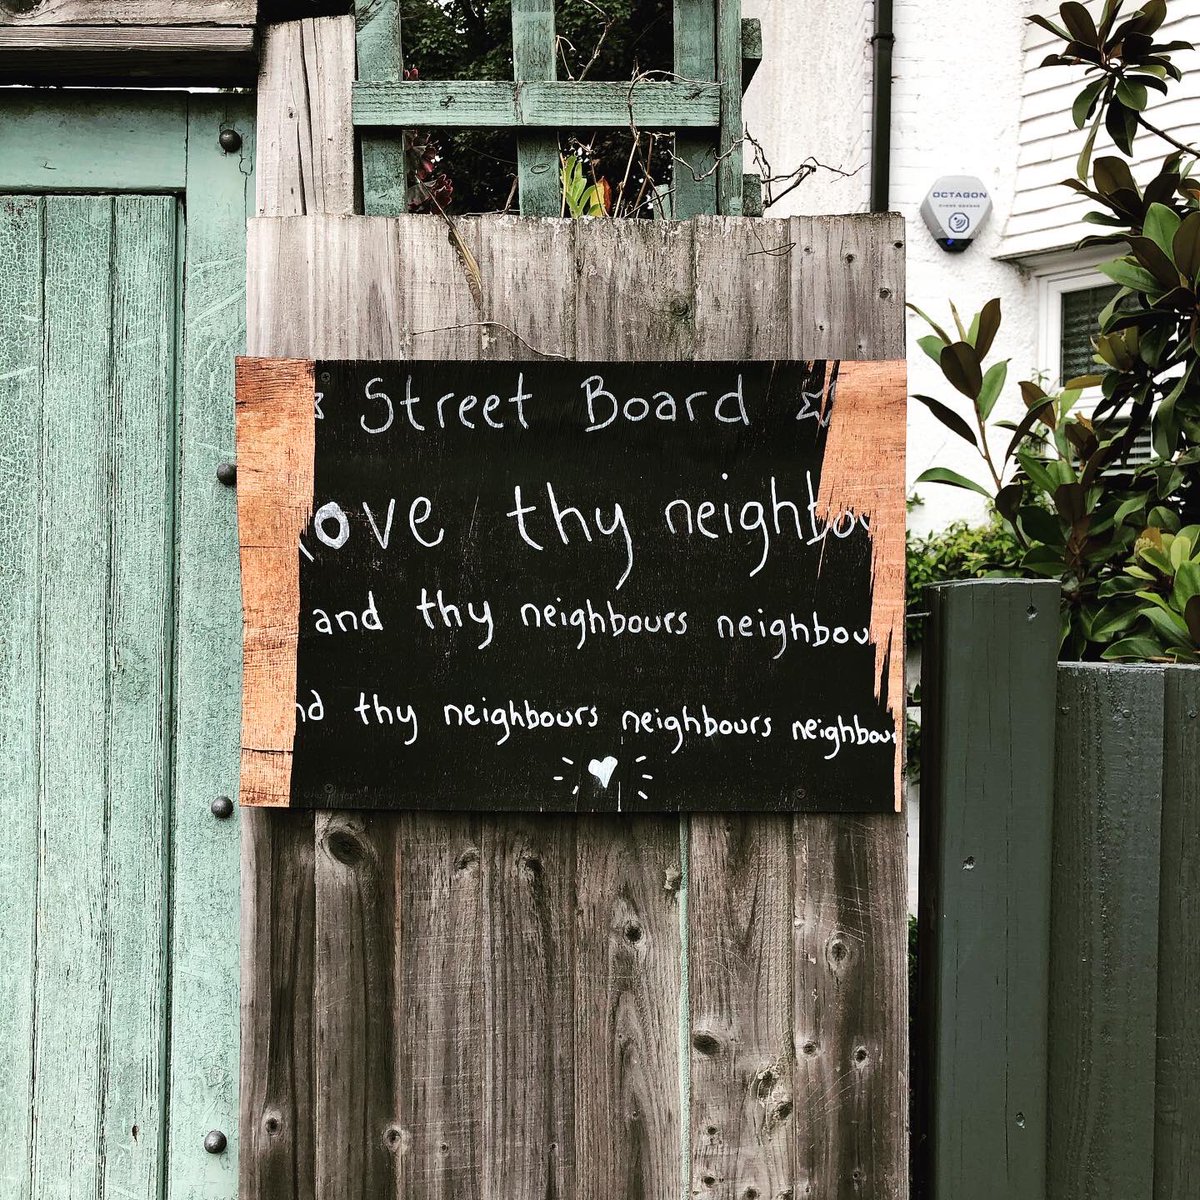 Street Board
Love thy neighbou
and thy neighbours neighbou
nd thy neighbours neighbours neighbour
OCTAGON